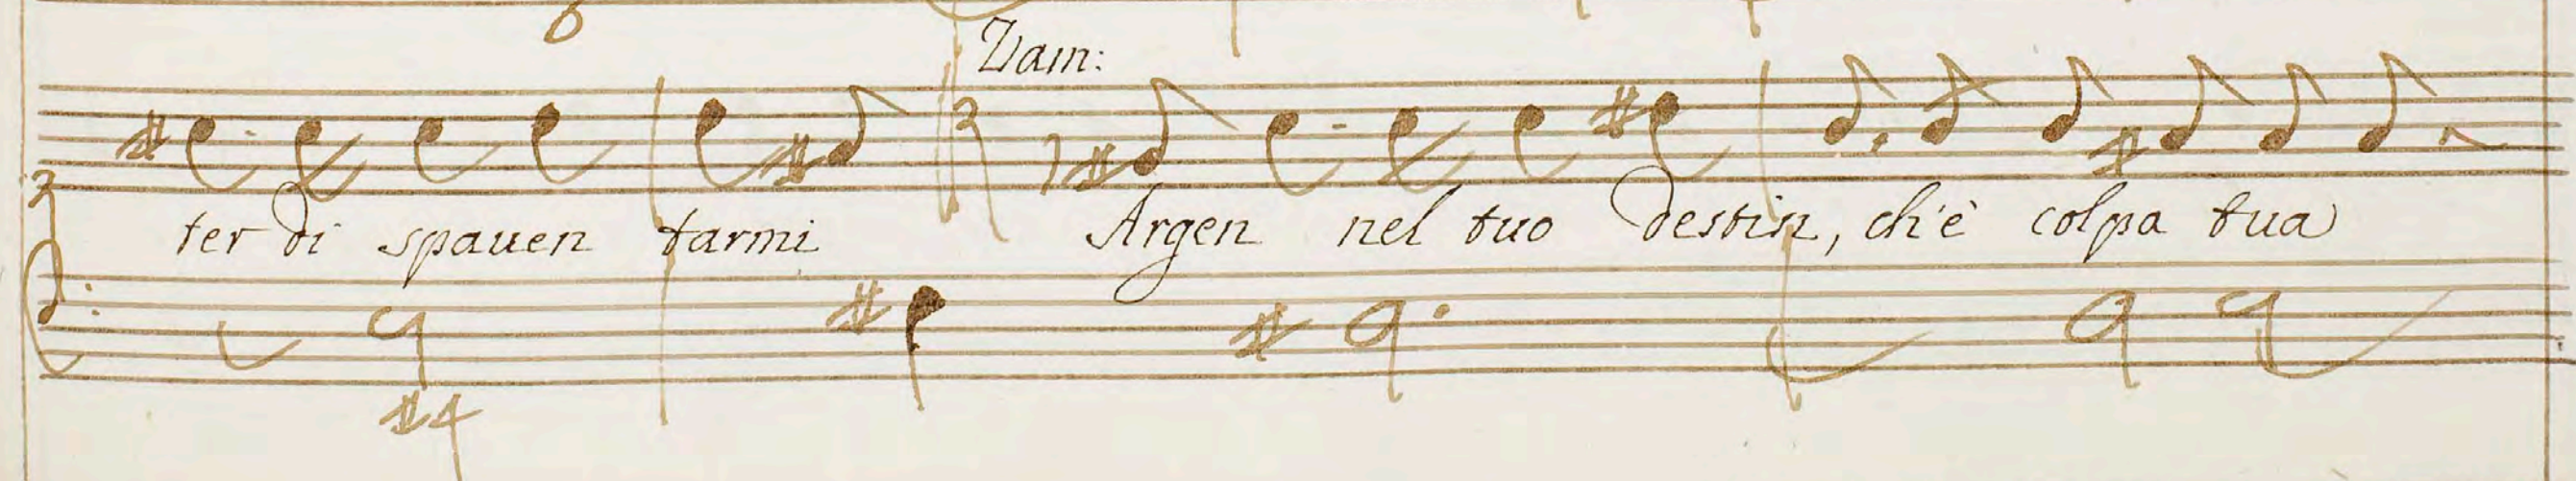 6
Vam:
ter di spauen tarmi Argen nel tuo destin, ch'è colpa tua
#4